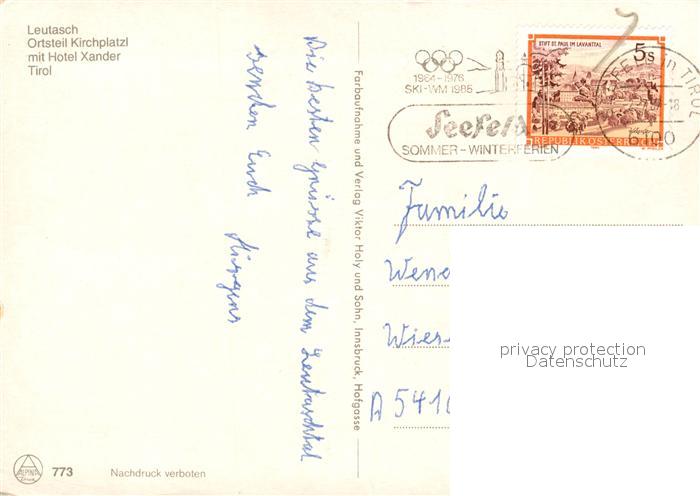 Leutasch
Ortsteil Kirchplatzl
mit Hotel Xander
Tirol
Die besten Grüsse aus dem Leutaschtal
senden Euch
Farbaufnahme und Verlag Viktor Holy und Sohn, Innsbruck, Hofgasse
1964-1976
SKI-WM 1985
Seefeld
SOMMER-WINTERFERIEN
STIFT ST. PAUL IM LAVANTTAL
5s
REPUBLIK ÖSTERREICH
SEEFELD in TIROL
6100
Familie
Wen
Wies
A 5410
privacy protection
Datenschutz
ALPINA
773
Nachdruck verboten